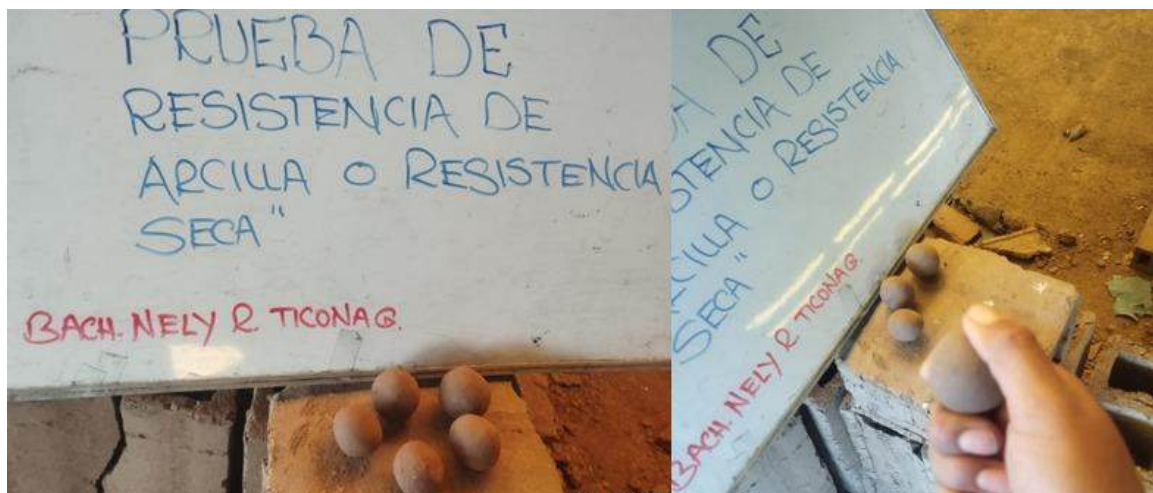 PRUEBA DE
RESISTENCIA DE
ARCILLA O RESISTENCIA
SECA"
BACH. NELY R. TICONA Q.
DE
STENCIA DE
CILLA O RESISTENCIA
SECA"
BACH. NELY R TICONA Q.